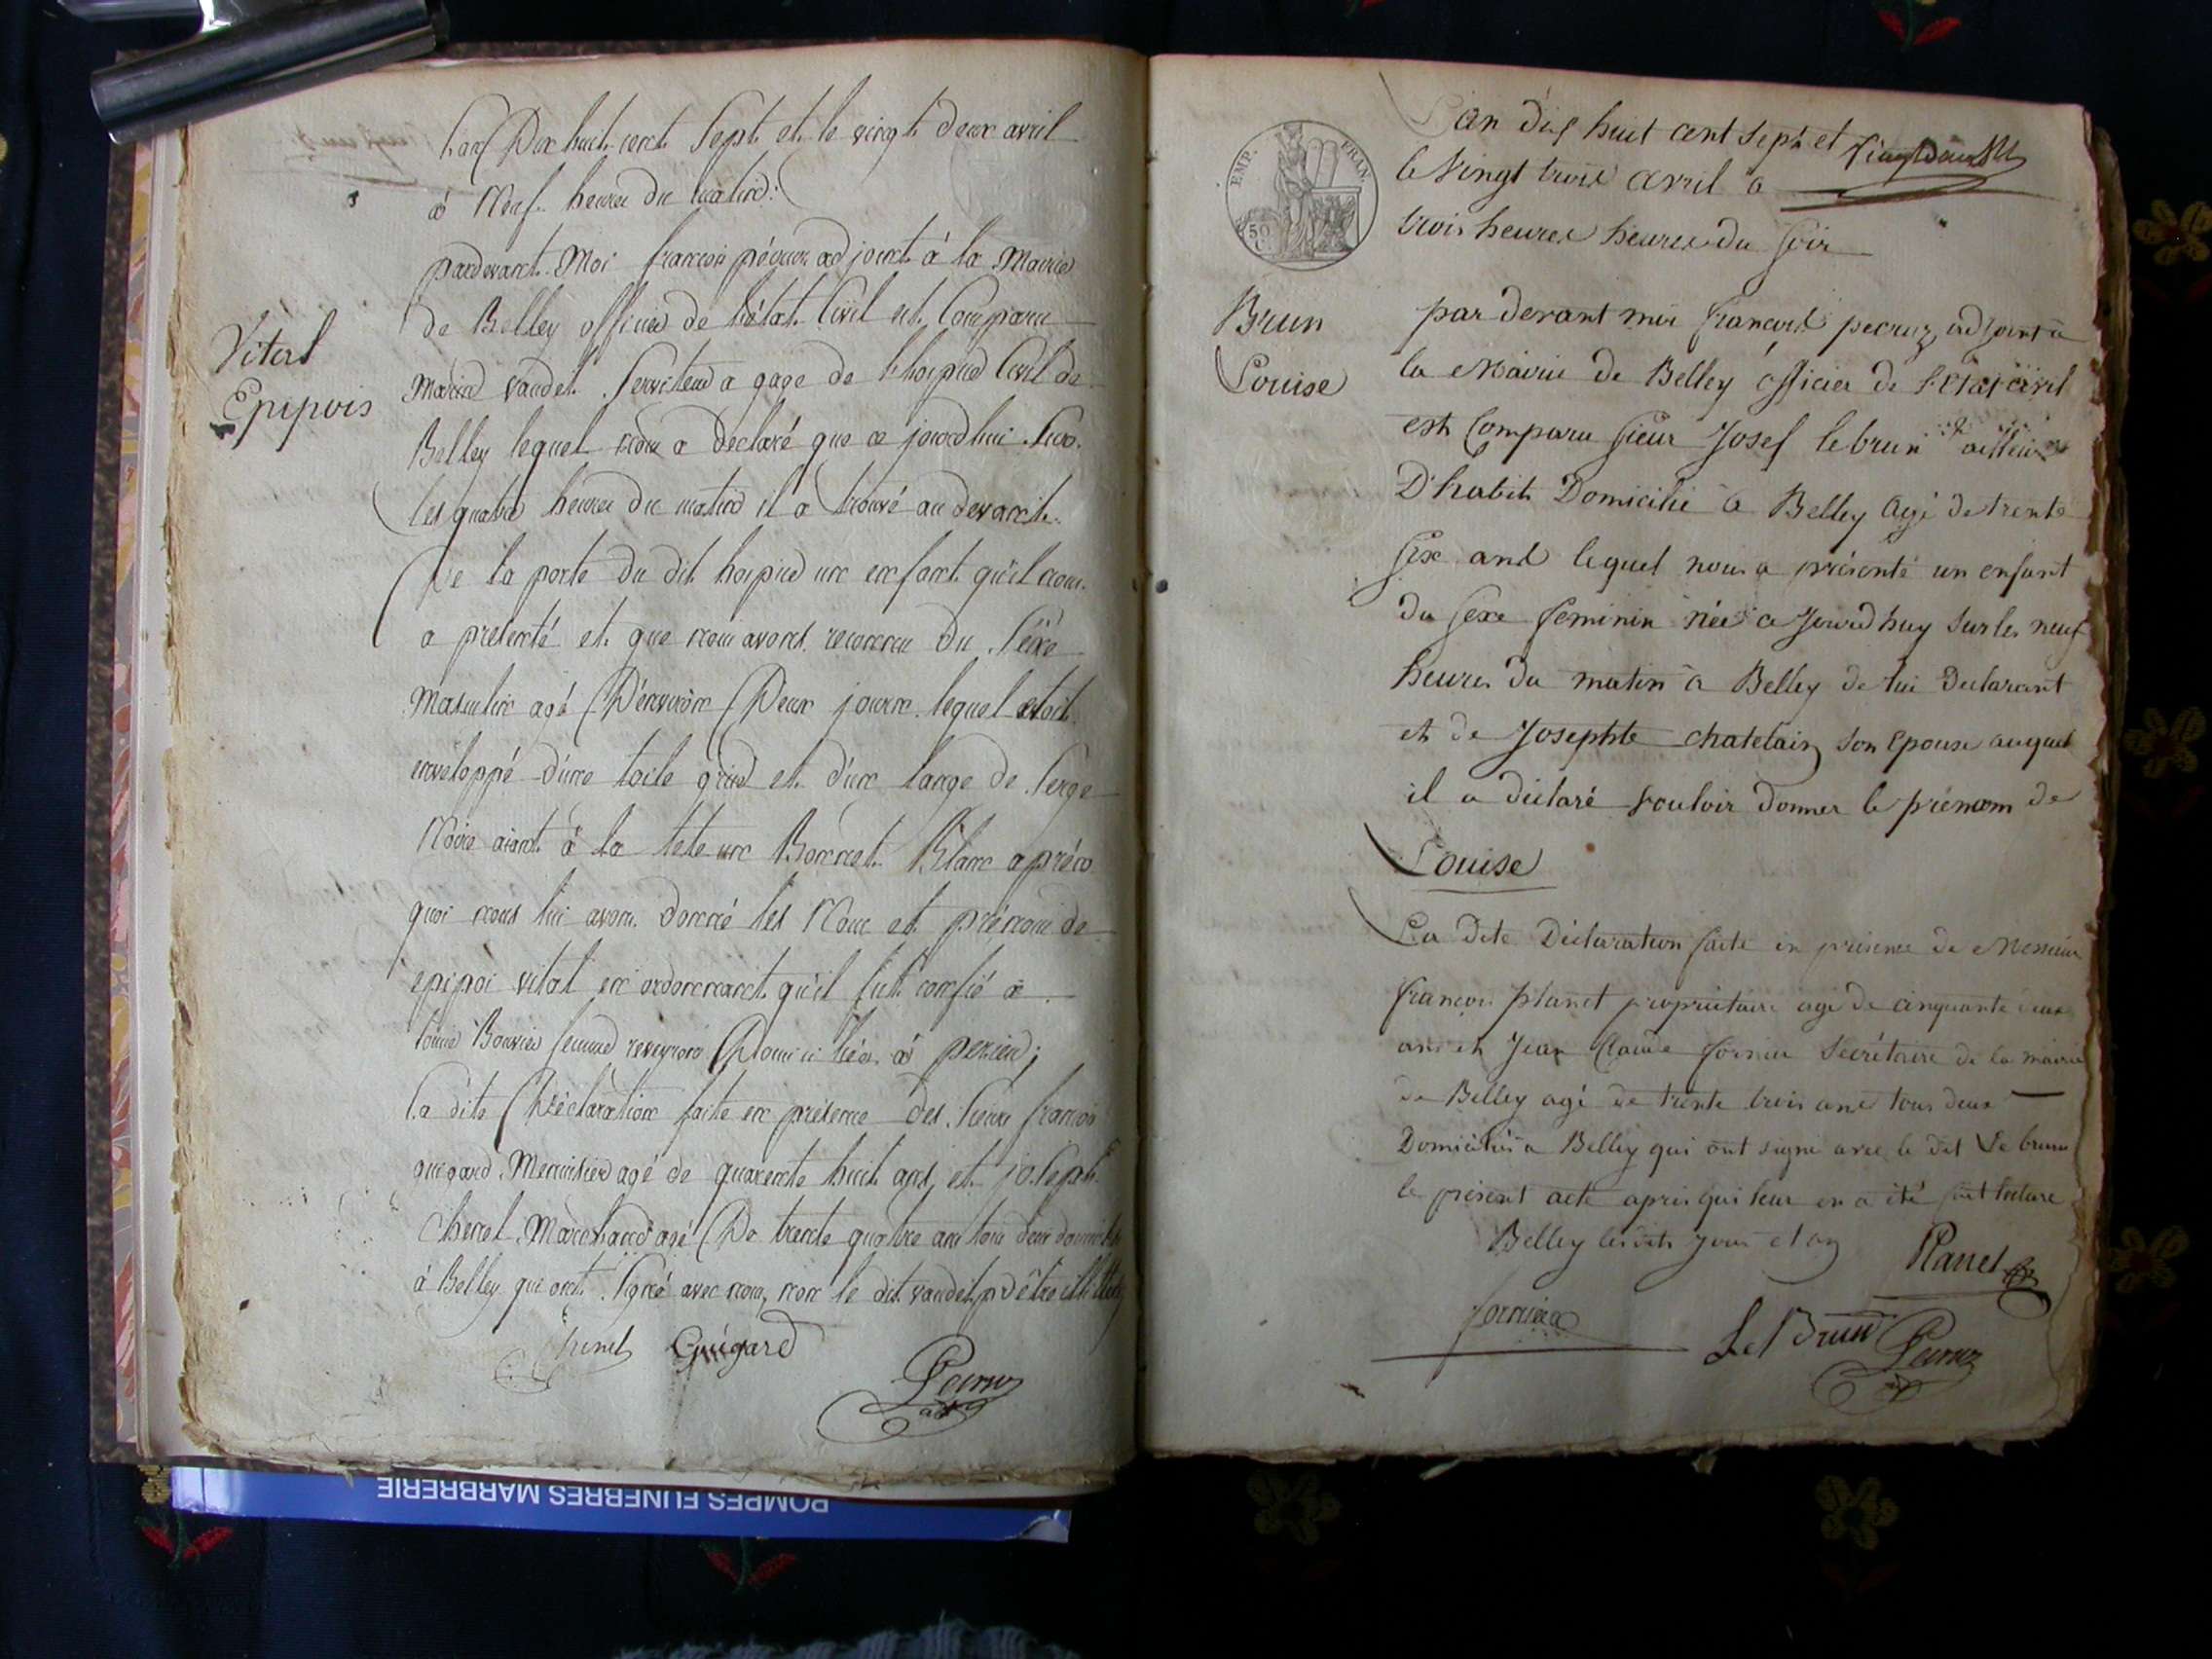 L'an Dix huit cent Sept et le vingt deux avril
à Neuf heures du matin
pardevant Moi françois pécruz adjoint à la Mairie
de Belley officier de l'état Civil est Comparu
Vital
Epipois
vaudet Serviteur a gage de l'hospice Civil de
Belley lequel nous a declaré que ce jourd'hui Sur
les quatre heures du matin il a trouvé au devant
De la porte du dit hospice un enfant qu'il nous
a presenté et que nous avons reconnu du Séxe
Masculin agé D'environ Deux jours lequel etoit
enveloppé d'une toile grise et d'un lange de Serge
Noire aiant à la tete un Bonnet Blanc aprés
quoi nous lui avons donné les Nom et prénom de
epipoi vital en ordonnant qu'il fut confié à
Bouvier femme Domiciliée à
La dite Déclaration faite en présence des Sieurs françois
guegard Menuisier agé de quarente huit ans et joseph
Chenel Marchand agé De trente quatre ans tous deux
à Belley qui ont Signé avec nous, non le dit vaudet
Chenel Guégard
Pecruz
adj
EMP. FRAN.
50
C.
L'an dix huit cent sept et
le Vingt trois avril a
trois heures heures du Soir
Brun
Louise
par devant moi francois pecruz adjoint a
la Mairie de Belley officier de l'état civil
est Comparu Sieur Josef lebrun tailleur
D'habit Domicilié a Belley agé de trente
Six ans lequel nous a présenté un enfant
du Sexe feminin née a Jourdhuy sur les neuf
heures du matin a Belley de lui declarant
et de Josephte chatelain son epouse auquel
il a déclaré vouloir donner le prénom de
Louise
La dite Déclaration faite en présence de Messieurs
françois planet proprietaire agé de cinquante deux
ans et Jean Claude fornier Secrétaire de la mairie
de Belley agé de trente trois ans tous deux
Domiciliés a Belley qui ont signé avec le dit Le brun
le present acte apres qui leur en a été fait lecture
Belley lesdits jours et an
Planet
fornier
Le Brun
Pecruz
adj
POMPES FUNEBRES MARBRERIE